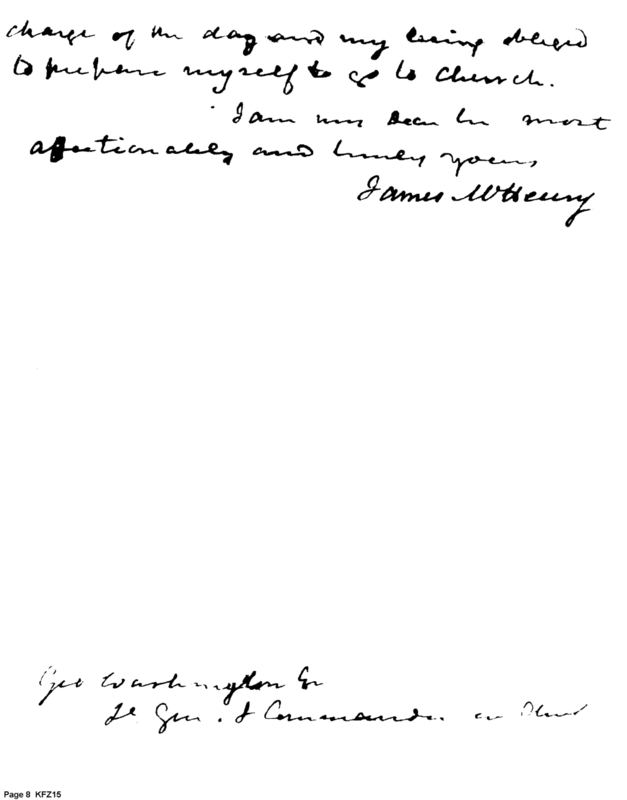 charge of the day and my being obliged
to prepare myself to go to church.
I am my dear Sir most
affectionately and truly yours
James McHenry
Geo Washington Esqr
Lt Gen. & Commander in Chief
Page 8 KFZ15